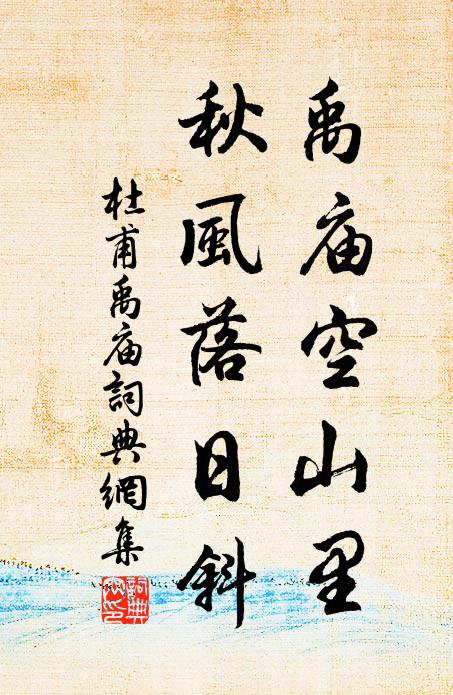 禹庙空山里
秋風落日斜
杜甫禹庙詞典網集